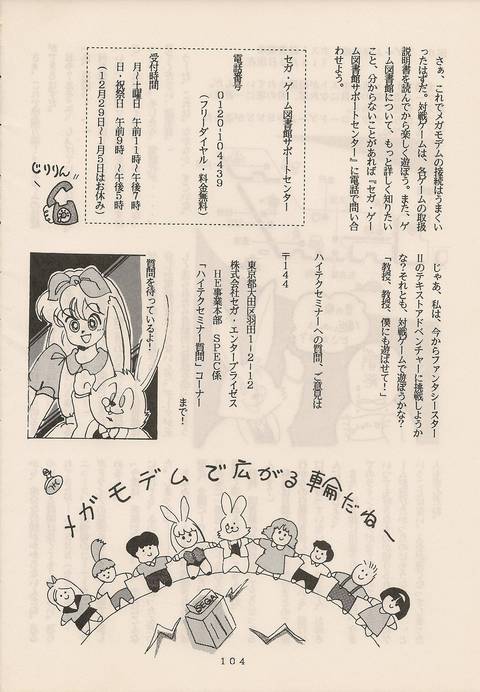 さぁ、これでメガモデムの接続はうまくい
ったはずだ。対戦ゲームは、各ゲームの取扱
説明書を読んでから楽しく遊ぼう。また、ゲ
ーム図書館について、もっと詳しく知りたい
こと、分からないことがあれば『セガ・ゲー
ム図書館サポートセンター』に電話で問い合
わせよう。
セガ・ゲーム図書館サポートセンター
電話番号
0120-104439
（フリーダイヤル・料金無料）
受付時間
月～土曜日 午前11時～午後7時
日・祝祭日 午前9時～午後5時
（12月29日～1月5日はお休み）
じりりん
じゃあ、私は、今からファンタシースター
IIのテキストアドベンチャーに挑戦しようか
な？それとも、対戦ゲームで遊ぼうかな？
「教授、教授、僕にも遊ばせて！」
ハイテクセミナーへの質問、ご意見は
〒144
東京都大田区羽田1-2-12
株式会社セガ・エンタープライゼス
HE事業本部 SPEC係
「ハイテクセミナー質問」コーナー
まで！
質問を待っているよ！
メガモデムで広がる輪だねー
SEGA
104